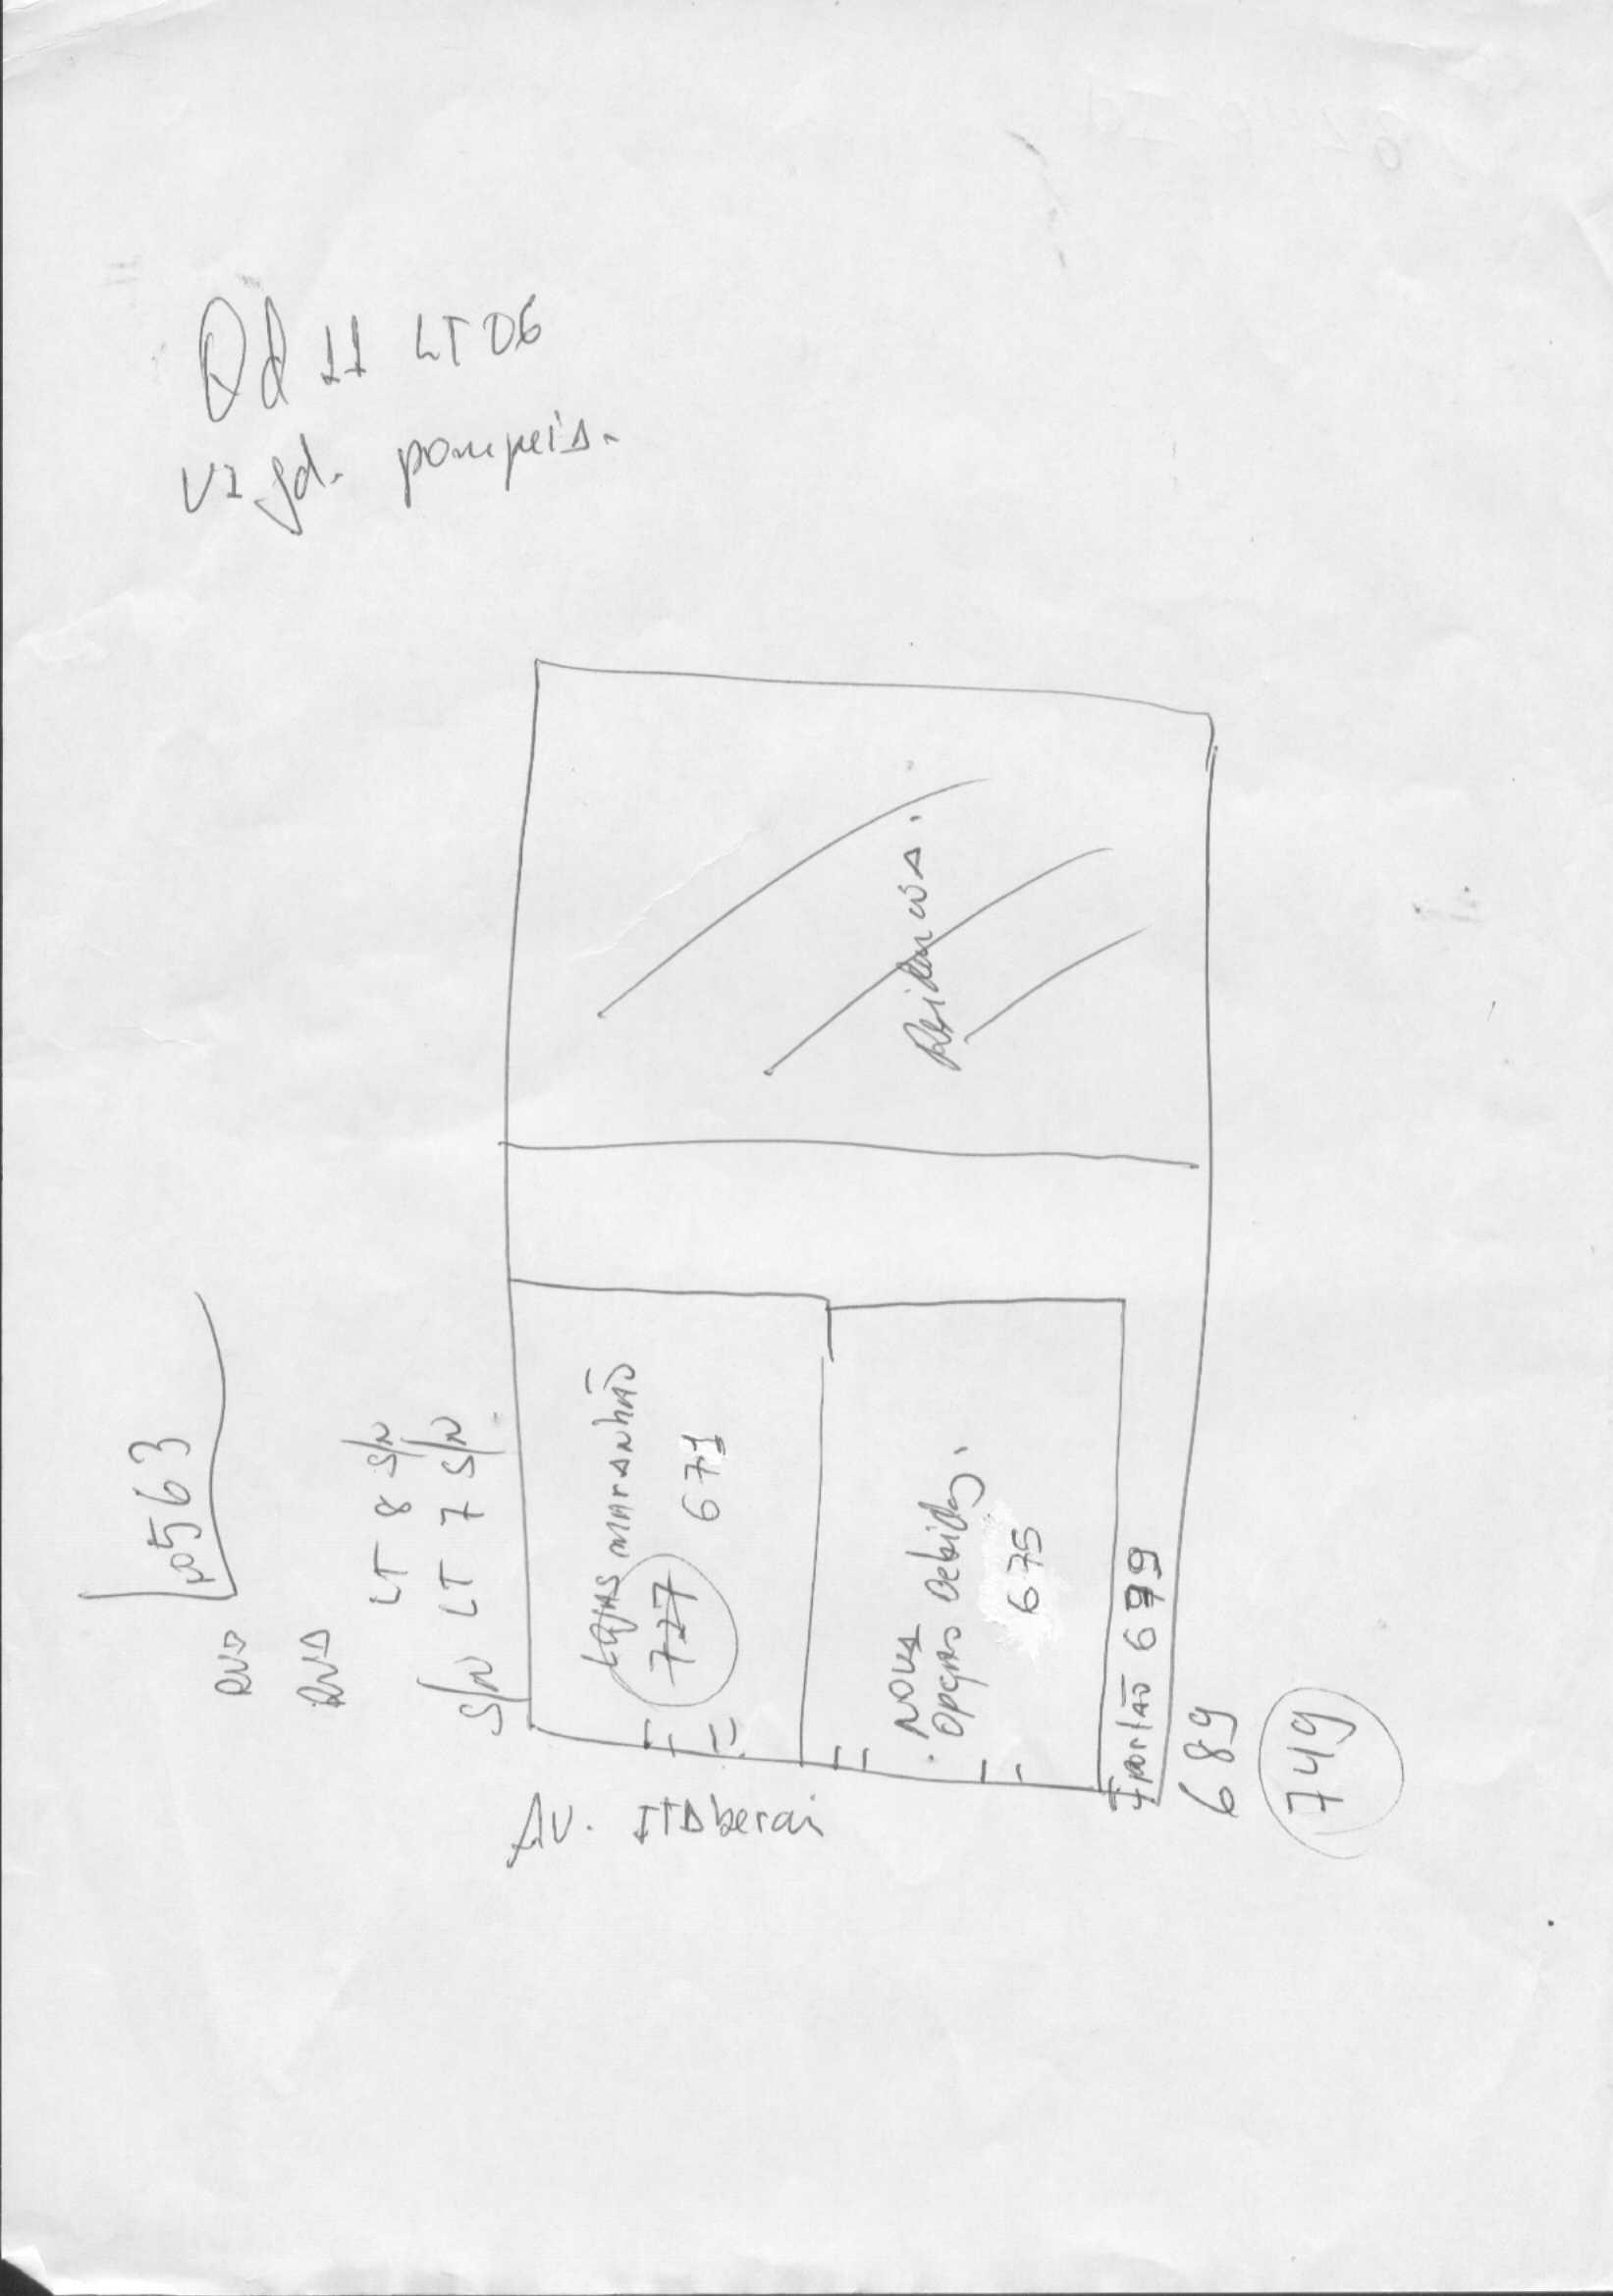 Qd 11 LT 06
VI Jd. pompeia.
nº 563
RUA
RUA
LT 8 S/N
S/N LT 7 S/N
Lajas maranhão
727 671
Residencia.
. NOVA
opção bebidas.
675
portão 679
689
749
Av. ITAberai